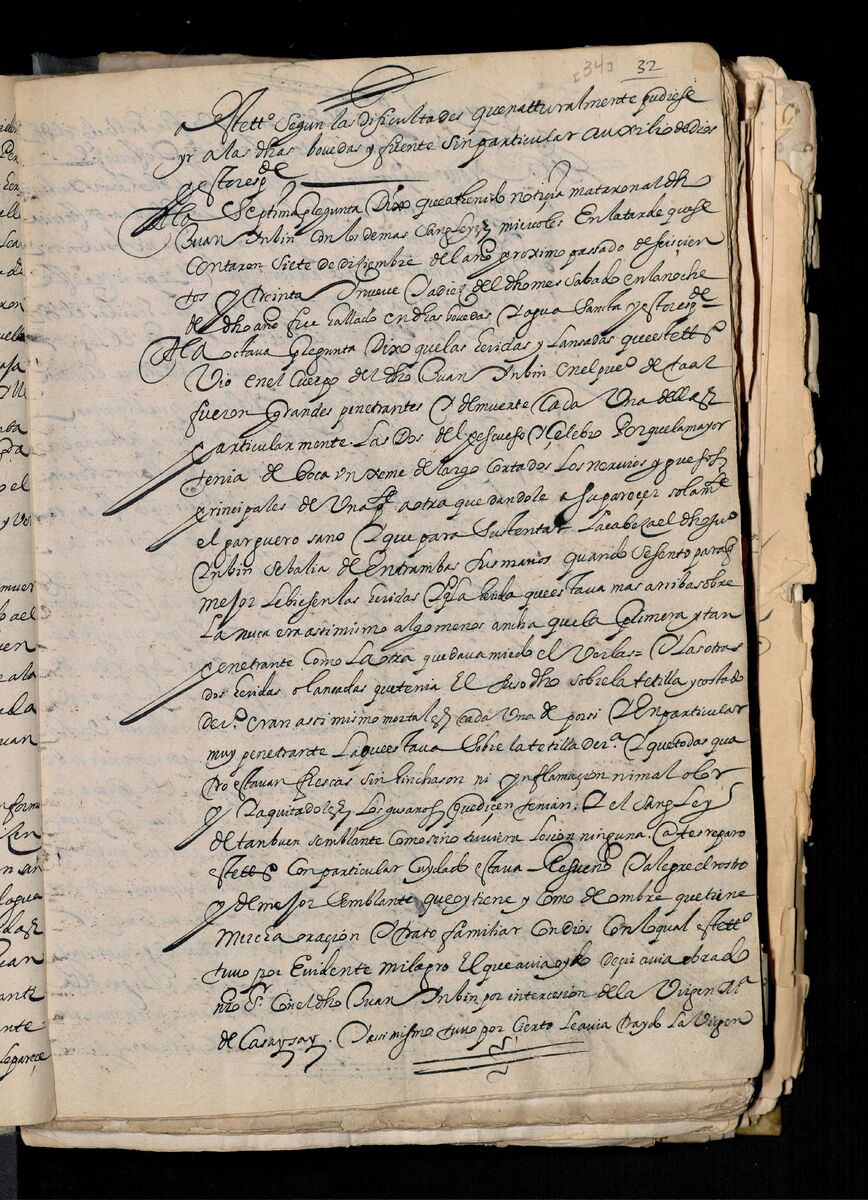 [34] 32
a estetto segun las dificultades que natturalmente pudiese
yr a las dhas bovedas y fuente sin particular auxilio de dios
y esto respde
A la septima pregunta Dixo que a thenido notiçia mataron al dh
Juan Inbin con los demas sangleyes miercoles en la tarde que se
contaron siete de diziembre del año proximo passado de seiscien
tos y treinta y nueve y a diez del dho mes sabado en la noche
del dho año fue hallado en dhas bovedas y agua santa y esto respde
A la octava pregunta Dixo que las heridas y lansadas que este tto
vio en el cuerpo del dho Juan Inbin en el pueo de taal
fueron grandes penetrantes y de muerte cada una dellas
particularmente. Las dos del pescueso y çelebro Porque la mayor
tenia de boca un xeme de largo cortados los nervios y
principales de una pte a otra quedandole a su parecer solamte
el garguero sano y que para sustentar la cabeza el dho Juo
Inbin se balia de entrambas sus manos quando se sento para q
mejor le biesen las heridas y q la herida que estava mas arriba sobre
la nuca era assimismo algo menos ancha que la primera y tan
penetrante como la otra que dava miedo el verlas = Y las otras
dos heridas o lansadas que tenia el susodho sobre la tetilla y costado
dero. eran assimismo mortales cada una de por si y en particular
muy penetrante la que estava sobre la tetilla dera. y que todas qua
tro estavan frescas sin hinchason ni ynflamaçion ni mal olor
y ya quitadoles los gusanos que dicen tenian. y el sangley
de tan buen semblante como si no tuviera lesion ninguna. antes reparo
este tto con particular cuydado estava risueño y alegre el rostro
y de mejor semblante que oy tiene y como de ombre que tiene
mucha oraçion y trato familiar con dios con lo qual este tto
tuvo por evidente milagro el que avia oydo deçir avia obrado
nro Sr. con el dho Juan Inbin por intercesion de la Virgen Ma
de Casaysay. y assimismo tuvo por cierto le avia traydo la Virgen